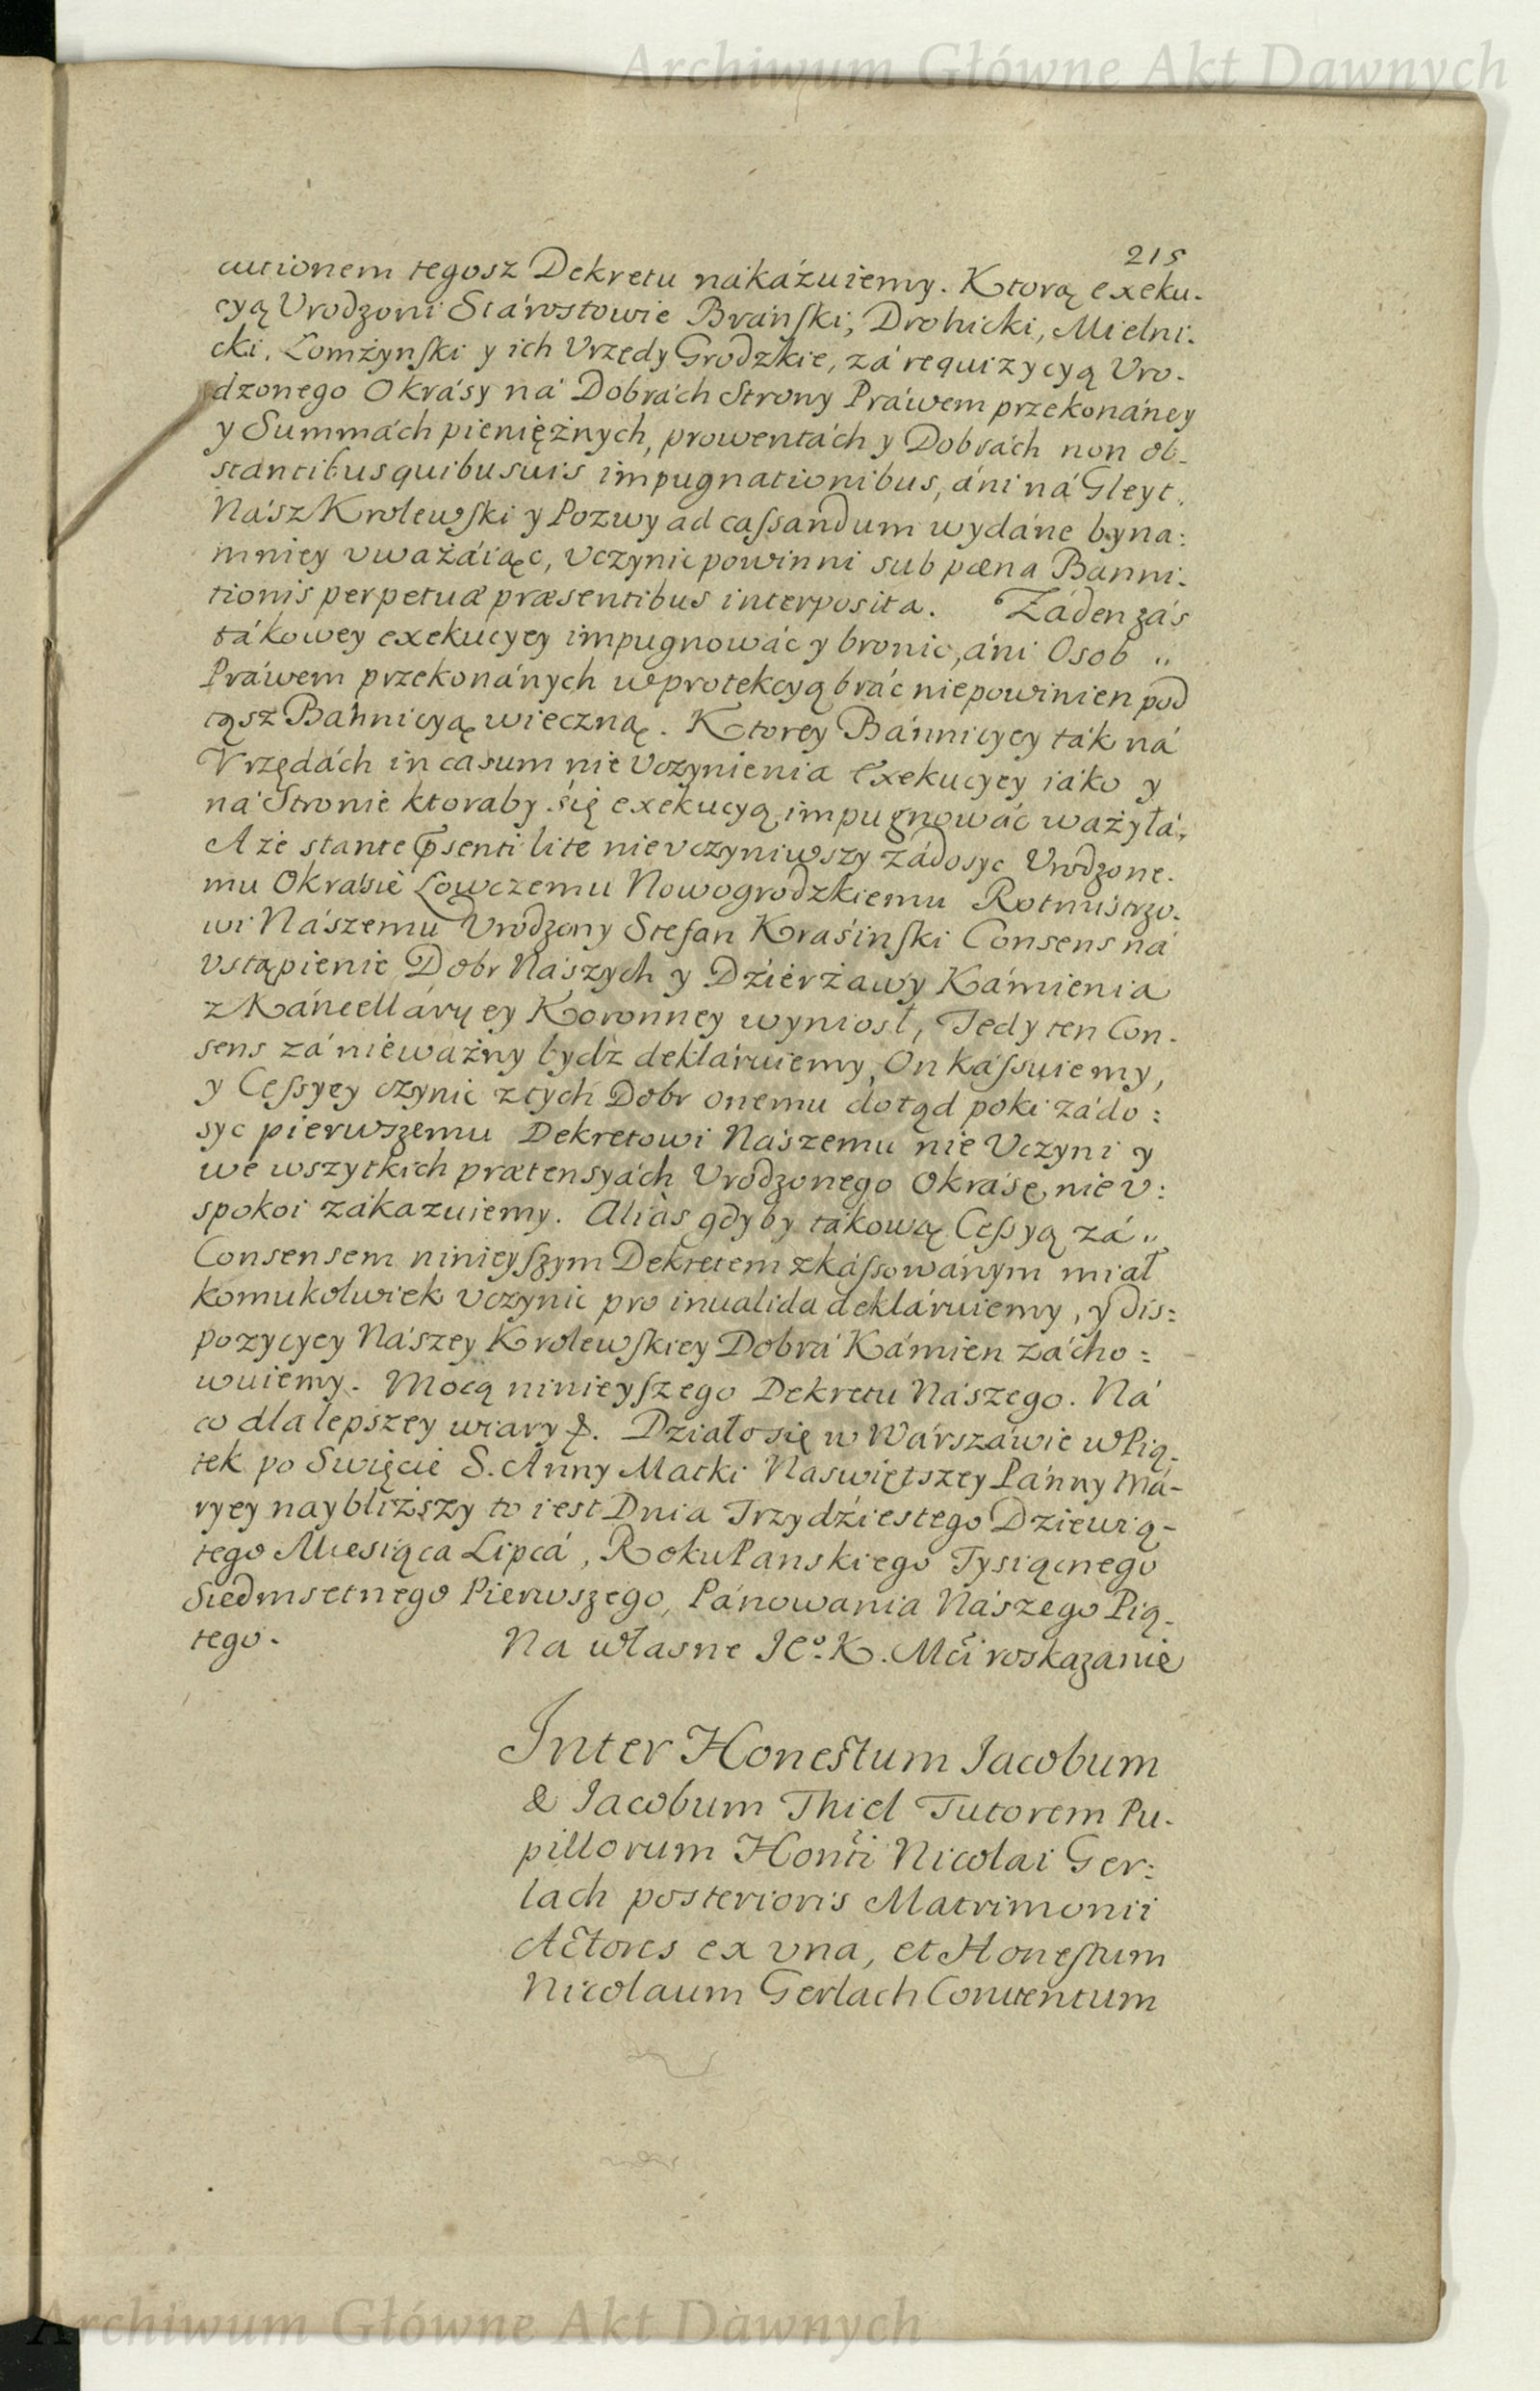 Archiwum Główne Akt Dawnych
215
cutionem tegosz Dekretu nákázuiemy. Ktorą exeku-
cyą Vrodzoni Stárostowie Bránſki, Drohicki, Mielni-
cki, Lomżynſki y ich Vrzędy Grodzkie, zá requizycyą Vro-
dzonego Okrásy ná Dobrách Strony Práwem przekonáney
y Summách pieniężnych, prowentách y Dobrách non ob-
stantibus quibusuis impugnationibus, áni ná Gleyt
Nász Krolewſki y Pozwy ad caſsandum wydáne byna:
mniey vważáiąc, Vczynic powinni sub pœna Banni-
tionis perpetuæ præsentibus interposita. Záden zás
tákowey exekucyey impugnowác y bronic, áni Osob „
Práwem przekonánych w protekcyą brác niepowinien pod
tąsz Bánnicyą wieczną. Ktorey Bánnicyey ták ná
Vrzędách in casum nie Vczynienia Exekucyey iáko y
ná Stronie ktoraby się exekucyą impugnowác ważyłá.
A że stante p̃senti lite nie vczyniwszy zádosyc Vrodzone-
mu Okrásie Łowczemu Nowogrodzkiemu Rotmistrzo-
wi Nászemu Vrodzony Stefan Kraśinſki Consens ná
vstąpienie Dobr Nászych y Dzierżawy Kámienia
z Káncelláryey Koronney wyniosł, Tedy ten Con-
sens zá nieważny bydź deklaruiemy, On káſsuiemy,
y Ceſsyey czynic z tych Dobr onemu dotąd poki zádo:
syc pierwszemu Dekretowi Nászemu nie Vczyni y
we wszytkich prætensyách Vrodzonego Okrásę nie v:
spokoi zákazuiemy. Aliàs gdyby tákową Ceſsyą zá „
Consensem ninieyſzym Dekretem zkáſsowánym miał
komukolwiek vczynic pro inualida deklaruiemy, y dis:
pozycyey Nászey Krolewſkiey Dobrá Kámien zácho:
wuiemy. Mocą ninieyſzego Dekretu Nászego. Ná
co dla lepszey wiary &. Działo się w Wárszáwie w Pią-
tek po Swięcie S. Anny Matki Naswiętszey Pánny Má-
ryey naybliższy to iest Dnia Trzydziestego Dziewią-
tego Miesiąca Lipcá, Roku Panskiego Tysiącnego
Siedmsetnego Pierwszego, Pánowania Nászego Pią-
tego. Na własne Ie͠o K. Mći roskazanie
Inter Honestum Iacobum
& Iacobum Thiel Tutorem Pu-
pillorum Honti Nicolai Ger:
lach posterioris Matrimonii
Actores ex vna, et Honeſtum
Nicolaum Gerlach Conuentum
Archiwum Główne Akt Dawnych